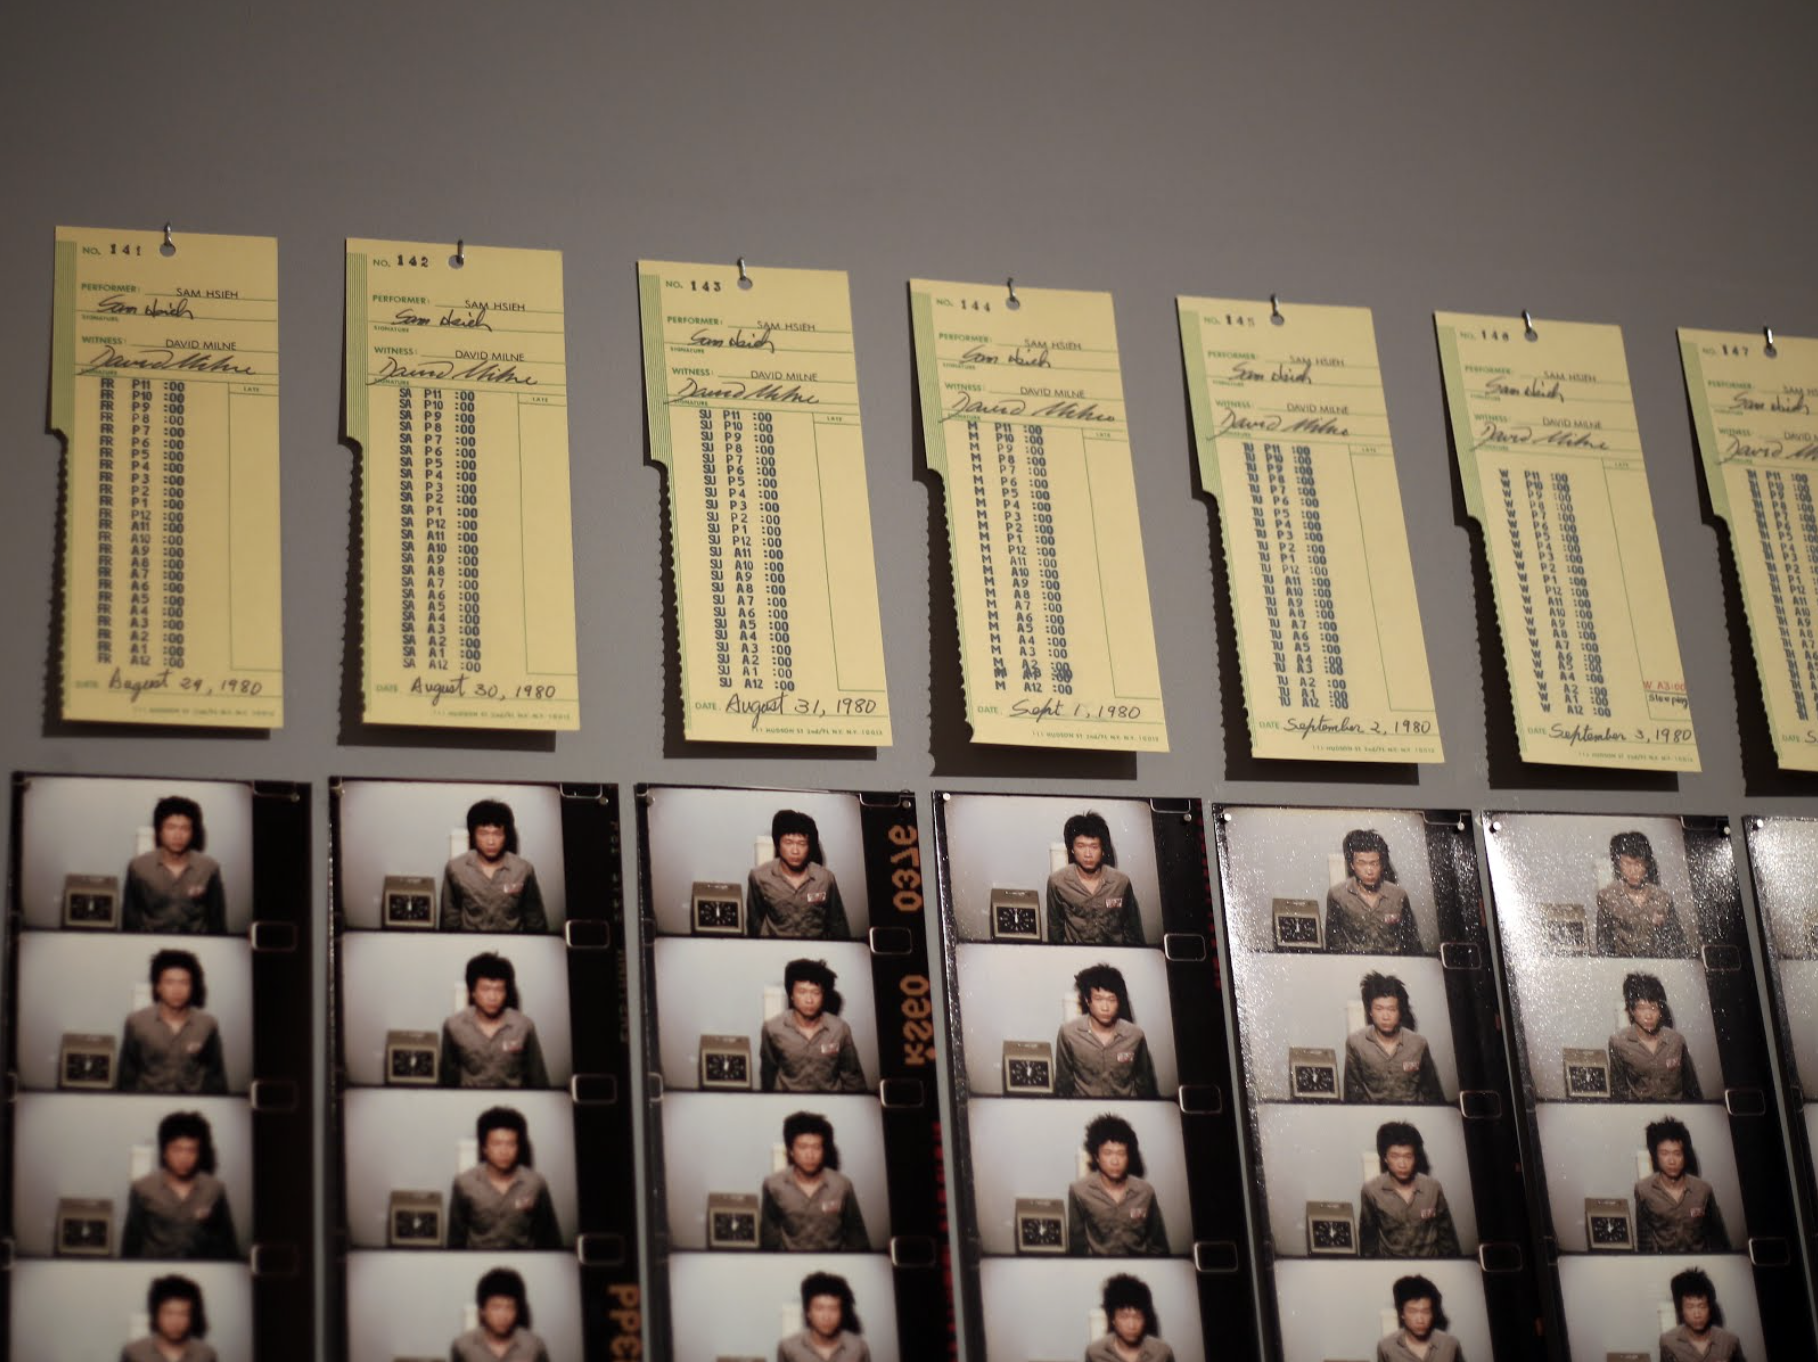 NO. 141
PERFORMER: SAM HSIEH
Sam Hsieh
SIGNATURE
WITNESS: DAVID MILNE
David Milne
SIGNATURE
LATE
FR P11 :00
FR P10 :00
FR P9 :00
FR P8 :00
FR P7 :00
FR P6 :00
FR P5 :00
FR P4 :00
FR P3 :00
FR P2 :00
FR P1 :00
FR P12 :00
FR A11 :00
FR A10 :00
FR A9 :00
FR A8 :00
FR A7 :00
FR A6 :00
FR A5 :00
FR A4 :00
FR A3 :00
FR A2 :00
FR A1 :00
FR A12 :00
DATE: August 29, 1980
111 HUDSON ST 2nd/FL N.Y. N.Y. 10013
NO. 142
PERFORMER: SAM HSIEH
Sam Hsieh
SIGNATURE
WITNESS: DAVID MILNE
David Milne
SIGNATURE
LATE
SA P11 :00
SA P10 :00
SA P9 :00
SA P8 :00
SA P7 :00
SA P6 :00
SA P5 :00
SA P4 :00
SA P3 :00
SA P2 :00
SA P1 :00
SA P12 :00
SA A11 :00
SA A10 :00
SA A9 :00
SA A8 :00
SA A7 :00
SA A6 :00
SA A5 :00
SA A4 :00
SA A3 :00
SA A2 :00
SA A1 :00
SA A12 :00
DATE: August 30, 1980
111 HUDSON ST 2nd/FL N.Y. N.Y. 10013
NO. 143
PERFORMER: SAM HSIEH
Sam Hsieh
SIGNATURE
WITNESS: DAVID MILNE
David Milne
SIGNATURE
LATE
SU P11 :00
SU P10 :00
SU P9 :00
SU P8 :00
SU P7 :00
SU P6 :00
SU P5 :00
SU P4 :00
SU P3 :00
SU P2 :00
SU P1 :00
SU P12 :00
SU A11 :00
SU A10 :00
SU A9 :00
SU A8 :00
SU A7 :00
SU A6 :00
SU A5 :00
SU A4 :00
SU A3 :00
SU A2 :00
SU A1 :00
SU A12 :00
DATE: August 31, 1980
111 HUDSON ST 2nd/FL N.Y. N.Y. 10013
NO. 144
PERFORMER: SAM HSIEH
Sam Hsieh
SIGNATURE
WITNESS: DAVID MILNE
David Milne
SIGNATURE
LATE
M P11 :00
M P10 :00
M P9 :00
M P8 :00
M P7 :00
M P6 :00
M P5 :00
M P4 :00
M P3 :00
M P2 :00
M P1 :00
M P12 :00
M A11 :00
M A10 :00
M A9 :00
M A8 :00
M A7 :00
M A6 :00
M A5 :00
M A4 :00
M A3 :00
M A2 :00
M A12 :00
DATE: Sept 1, 1980
111 HUDSON ST 2nd/FL N.Y. N.Y. 10013
NO. 145
PERFORMER: SAM HSIEH
Sam Hsieh
SIGNATURE
WITNESS: DAVID MILNE
David Milne
SIGNATURE
LATE
TU P11 :00
TU P10 :00
TU P9 :00
TU P8 :00
TU P7 :00
TU P6 :00
TU P5 :00
TU P4 :00
TU P3 :00
TU P2 :00
TU P1 :00
TU P12 :00
TU A11 :00
TU A10 :00
TU A9 :00
TU A8 :00
TU A7 :00
TU A6 :00
TU A5 :00
TU A4 :00
TU A3 :00
TU A2 :00
TU A1 :00
TU A12 :00
DATE: September 2, 1980
111 HUDSON ST 2nd/FL N.Y. N.Y. 10013
NO. 146
PERFORMER: SAM HSIEH
Sam Hsieh
SIGNATURE
WITNESS: DAVID MILNE
David Milne
SIGNATURE
LATE
W P11 :00
W P10 :00
W P9 :00
W P8 :00
W P7 :00
W P6 :00
W P5 :00
W P4 :00
W P3 :00
W P2 :00
W P1 :00
W P12 :00
W A11 :00
W A10 :00
W A9 :00
W A8 :00
W A7 :00
W A6 :00
W A5 :00
W A4 :00
W A2 :00
W A1 :00
W A12 :00
W A3:00
Sleeping
DATE: September 3, 1980
111 HUDSON ST 2nd/FL N.Y. N.Y. 10013
NO. 147
PERFORMER: SAM
Sam Hsieh
WITNESS: DAVID
David
TH P11 :00
TH P10 :00
TH P9 :00
DATE: S